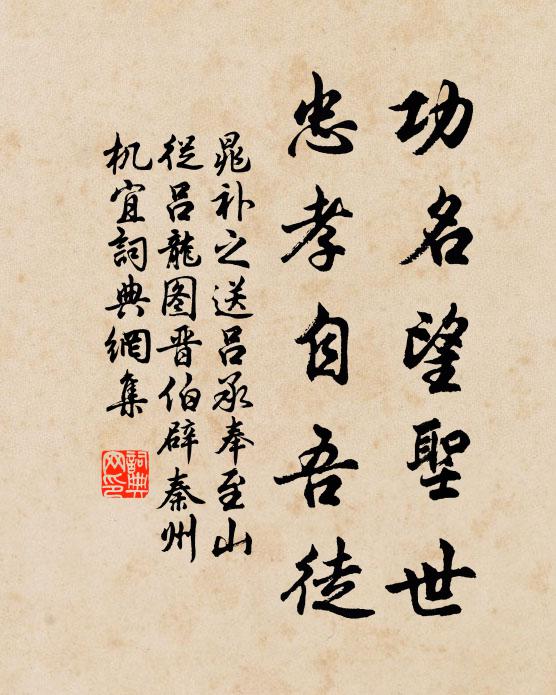 功名望聖世
忠孝自吾徒
晁补之送吕承奉至山
従吕龍图晋伯辟秦州
机宜詞典網集
詞典网印